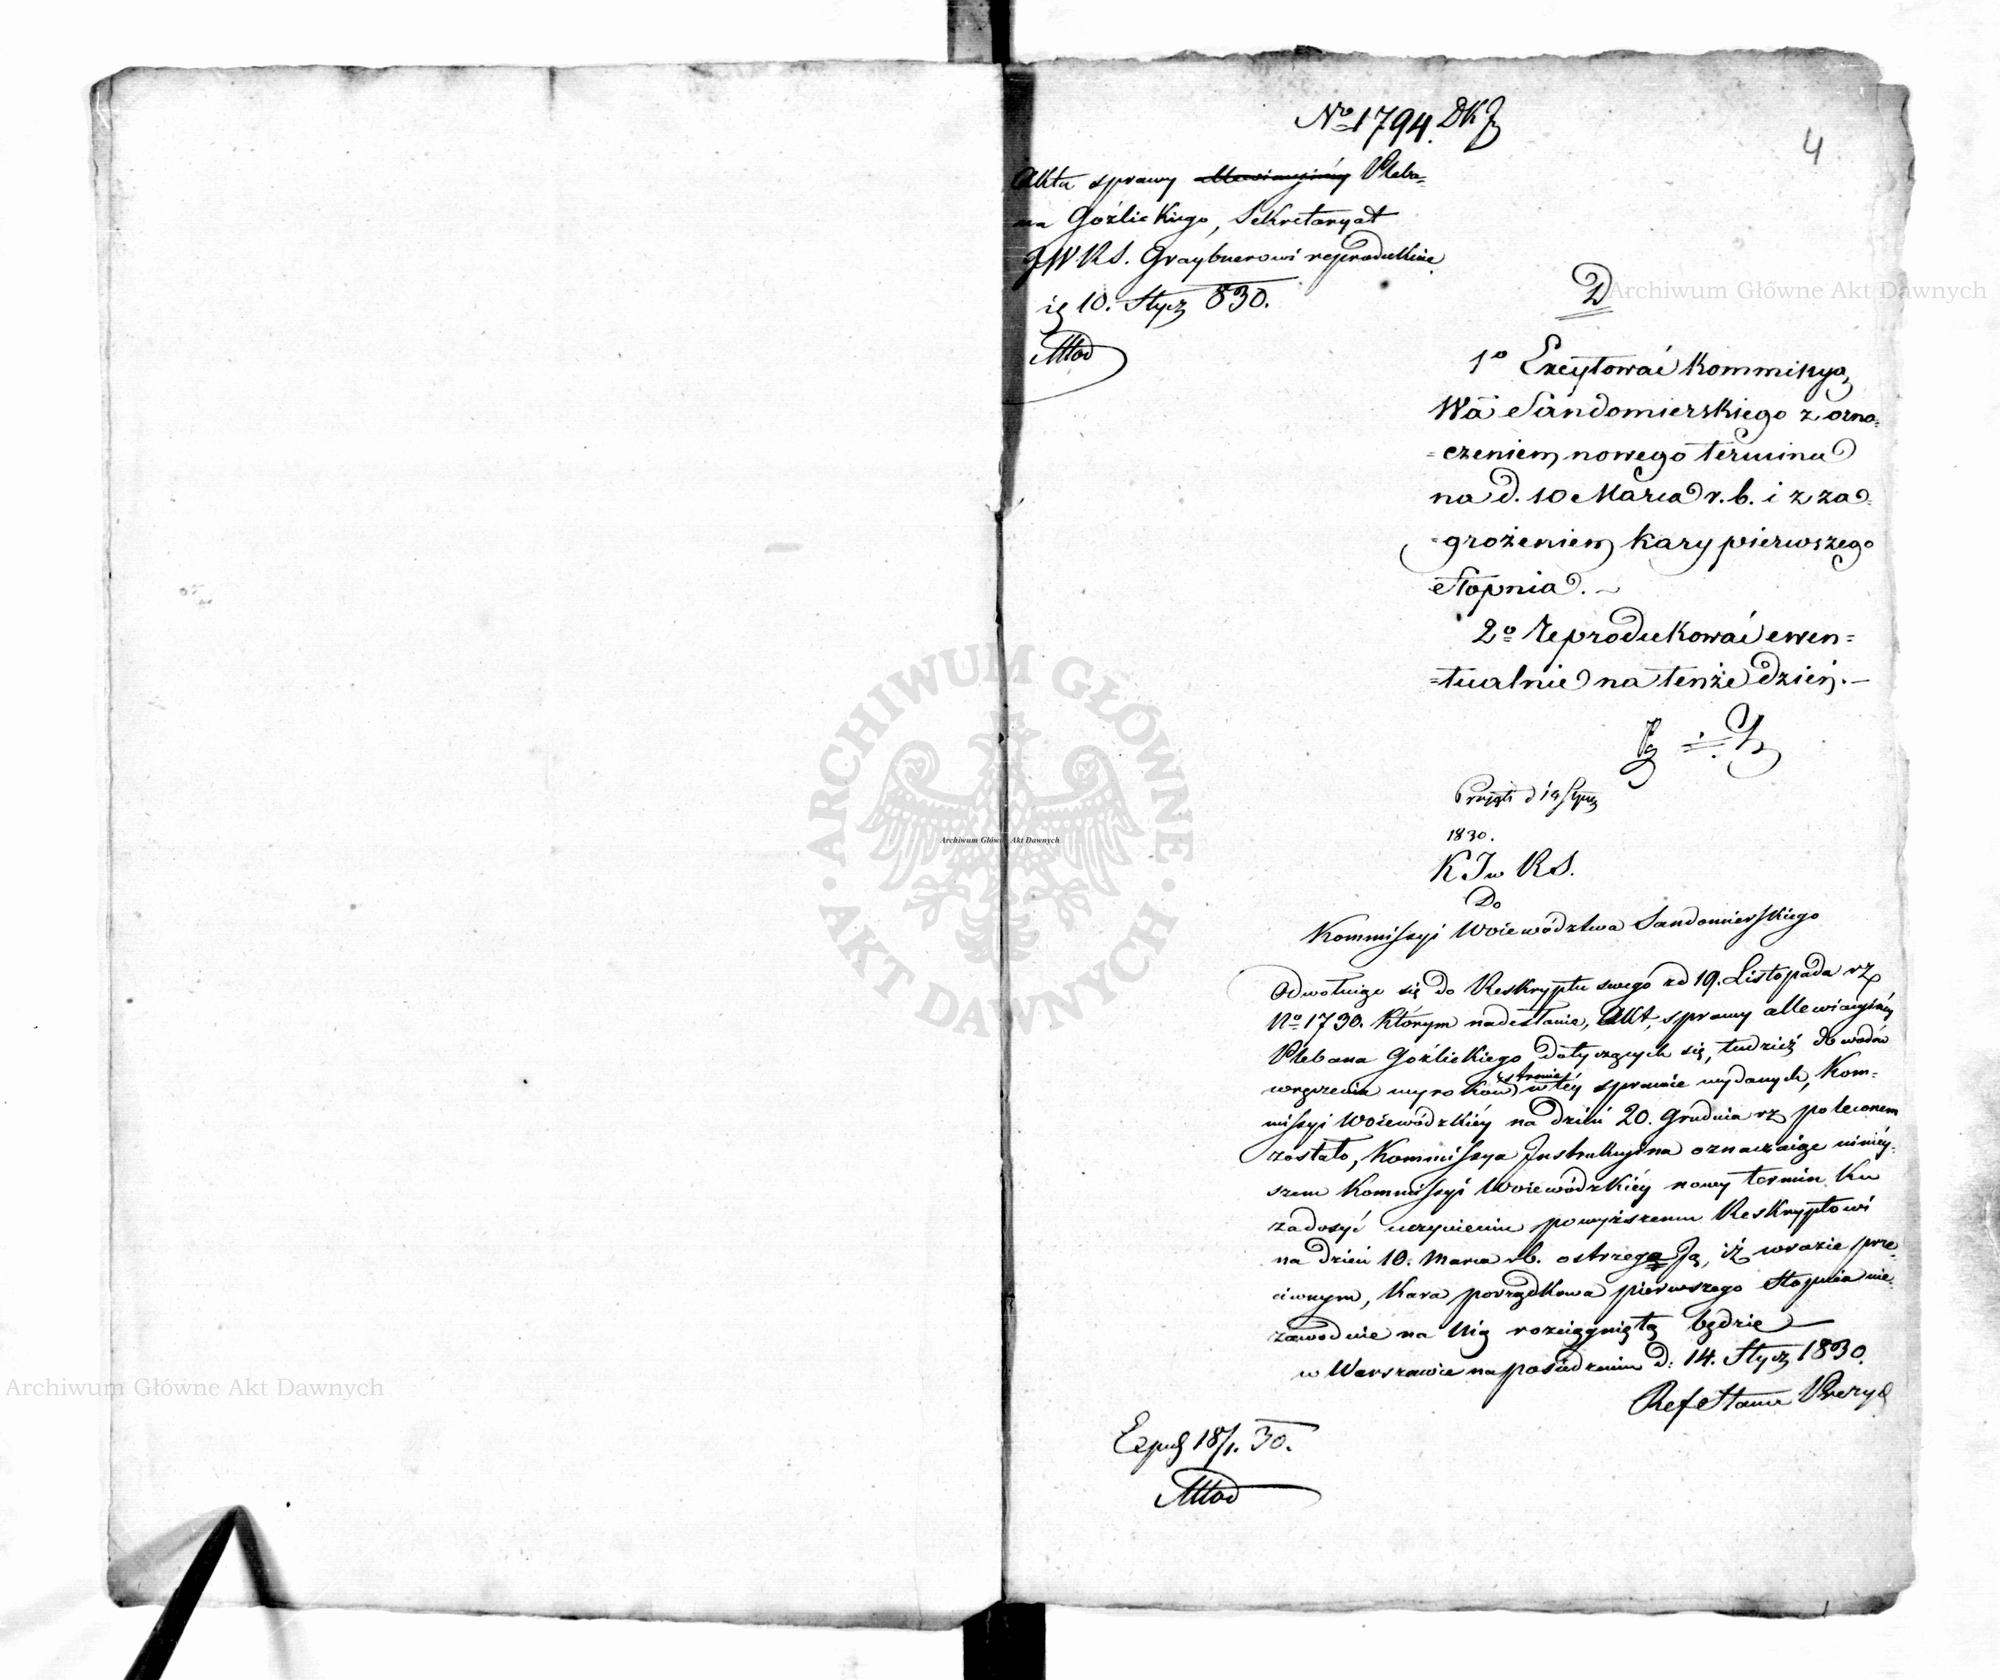 No 1794. DKJ
4
Akta sprawy allewiacyiney Pleba=
na Goźlickiego, Sekretaryat
JW RS. Graybnerowi reprodukuie
ię 10. Stycz 830.
D
1o Excytować Kommissyą
Wa Sandomierskiego z ozna=
=czeniem nowego terminu
na d. 10 Marca r. b. i z za=
=grożeniem kary pierwszego
Stopnia. ~
2o reprodukować ewen=
=tualnie na tenże dzień. —
Przyięto d 14 Stycz
1830.
K J w RS.
Do
Kommissyi Woiewództwa Sandomierskiego
Odwołuiąc się do Reskryptu swego z d 19. Listopada rz
No 1730. którym nadesłanie, Akt, sprawy allewiacyiney
Plebana Goźlickiego dotyczących się, tudzież dowodów
wręczenia wyroków stronie w tey sprawie wydanych, Kom=
missyi Woiewódzkiéy na dzień 20. Grudnia rz poleconem
zostało, Kommissya Instrukcyina oznaczaiąc niniéy=
szem Kommissyi Woiewódzkiéy nowy termin ku
zadosyć uczynieniu powyższemu Reskryptowi
na dzień 10. Marca rb. ostrzega Ją, iż w razie prze=
ciwnym, kara porządkowa pierwszego Stopnia nie=
zawodnie na Nią rozciągniętą będzie —
w Warszawie na posiedzeniu d: 14. Stycz 1830.
Ref Stanu
Exped 18/1. 30.
Archiwum Główne Akt Dawnych
Archiwum Główne Akt Dawnych
Archiwum Główne Akt Dawnych
ARCHIWUM GŁÓWNE
· AKT DAWNYCH ·